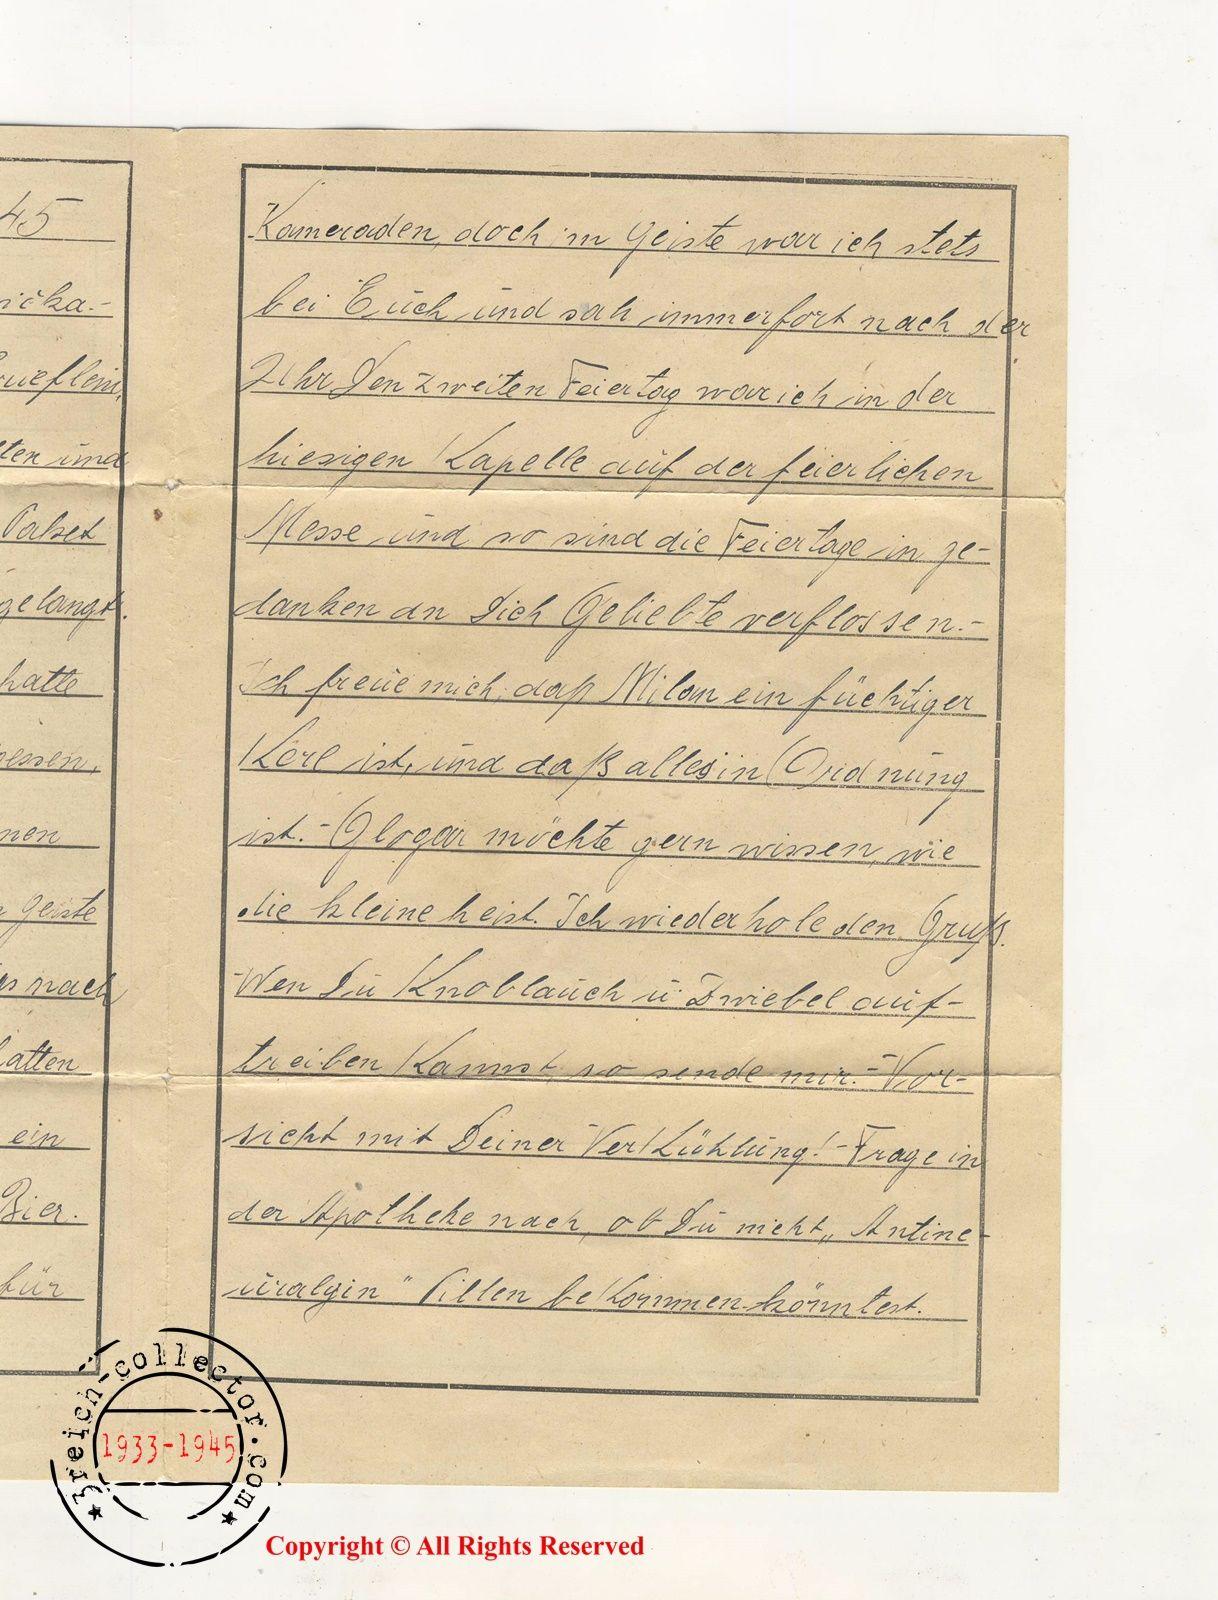 45
ička.-
ueflein,
ten und
Paket
gelangt.
hatte
essen,
nen
geiste
s nach
atten
ein
Bier.
für
Kameraden, doch im Geiste war ich stets
bei Euch und sah immerfort nach der
Uhr Den zweiten Feiertag war ich in der
hiesigen Kapelle auf der feierlichen
Messe und so sind die Feiertage in ge-
danken an Dich Geliebte verflossen.-
Ich freue mich, daß Milan ein tüchtiger
Kerl ist, und daß alles in Ordnung
ist.- Glogar möchte gern wissen, wie
die kleine heist. Ich wiederhole den Gruß.
Wen Du Knoblauch u. Zwiebel auf-
treiben Kannst, so sende mir.- Vor-
sicht mit Deiner VerKühlung!- Frage in
der Apotheke nach, ob Du nicht „Antine-
uralgin" Pillen beKommen könntest.
3reich-collector.com
1933-1945
Copyright © All Rights Reserved